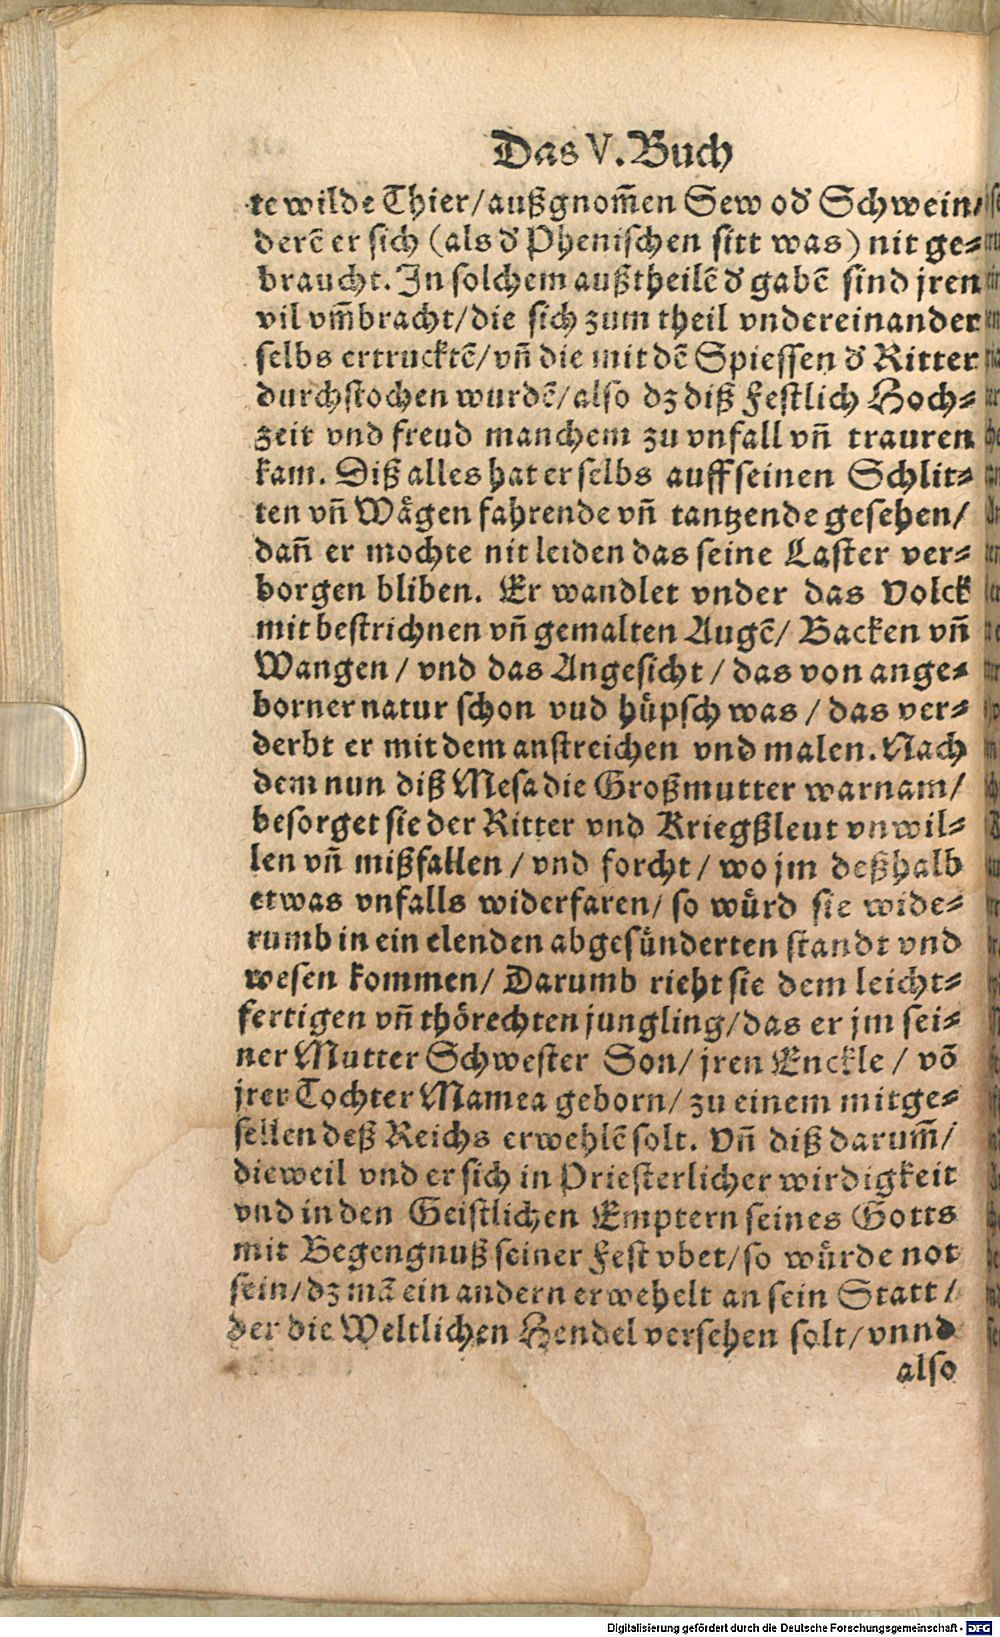 Das V. Buch
te wilde Thier/außgnom̄en Sew od' Schwein/
derē er sich (als d' Phenischen sitt was) nit ge⸗
braucht. In solchem außtheilē d' gabē sind jren
vil vm̄bracht/die sich zum theil vndereinander
selbs ertrucktē/vn̄ die mit dē Spiessen d' Ritter
durchstochen wurdē/also dz diß Festlich Hoch⸗
zeit vnd freud manchem zu vnfall vn̄ trauren
kam. Diß alles hat er selbs auff seinen Schlit⸗
ten vn̄ Wågen fahrende vn̄ tantzende gesehen/
dan̄ er mochte nit leiden das seine Laster ver⸗
borgen bliben. Er wandlet vnder das Volck
mit bestrichnen vn̄ gemalten Augē/ Backen vn̄
Wangen / vnd das Angesicht / das von ange⸗
borner natur schon vud hüpsch was / das ver⸗
derbt er mit dem anstreichen vnd malen. Nach
dem nun diß Mesa die Großmutter warnam/
besorget sie der Ritter vnd Kriegßleut vnwil⸗
len vn̄ mißfallen / vnd forcht / wo jm deßhalb
etwas vnfalls widerfaren/ so würd sie wide⸗
rumb in ein elenden abgesünderten standt vnd
wesen kommen/ Darumb rieht sie dem leicht⸗
fertigen vn̄ thörechten jungling/das er jm sei⸗
ner Mutter Schwester Son/ jren Enckle / vō
jrer Tochter Mamea geborn/ zu einem mitge⸗
sellen deß Reichs erwehlē solt. Vn̄ diß darum̄/
dieweil vnd er sich in Priesterlicher wirdigkeit
vnd in den Geistlichen Emptern seines Gotts
mit Begengnuß seiner Fest vbet/so würde not
sein/dz mā ein andern erwehelt an sein Statt /
der die Weltlichen Hendel versehen solt/ vnnd
also
Digitalisierung gefördert durch die Deutsche Forschungsgemeinschaft - DFG